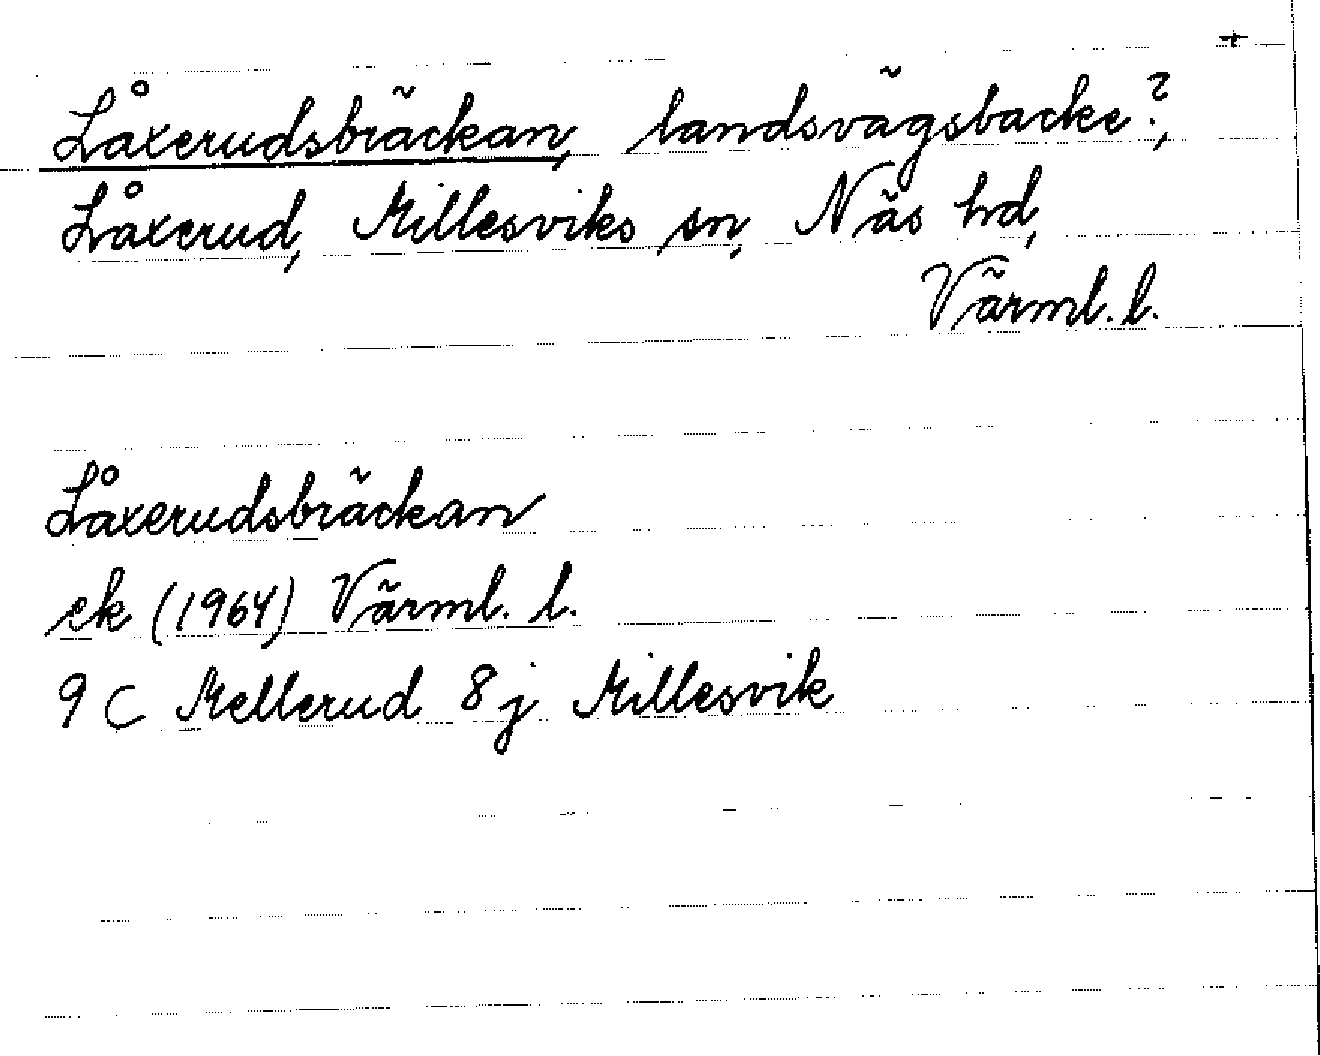 +
Låxerudsbräckan, landsvägsbacke?,
Låxerud, Millesviks sn, Näs hd,
Värml. l.
Låxerudsbräckan
ek (1964) Värml. l.
9 C Mellerud 8 j Millesvik